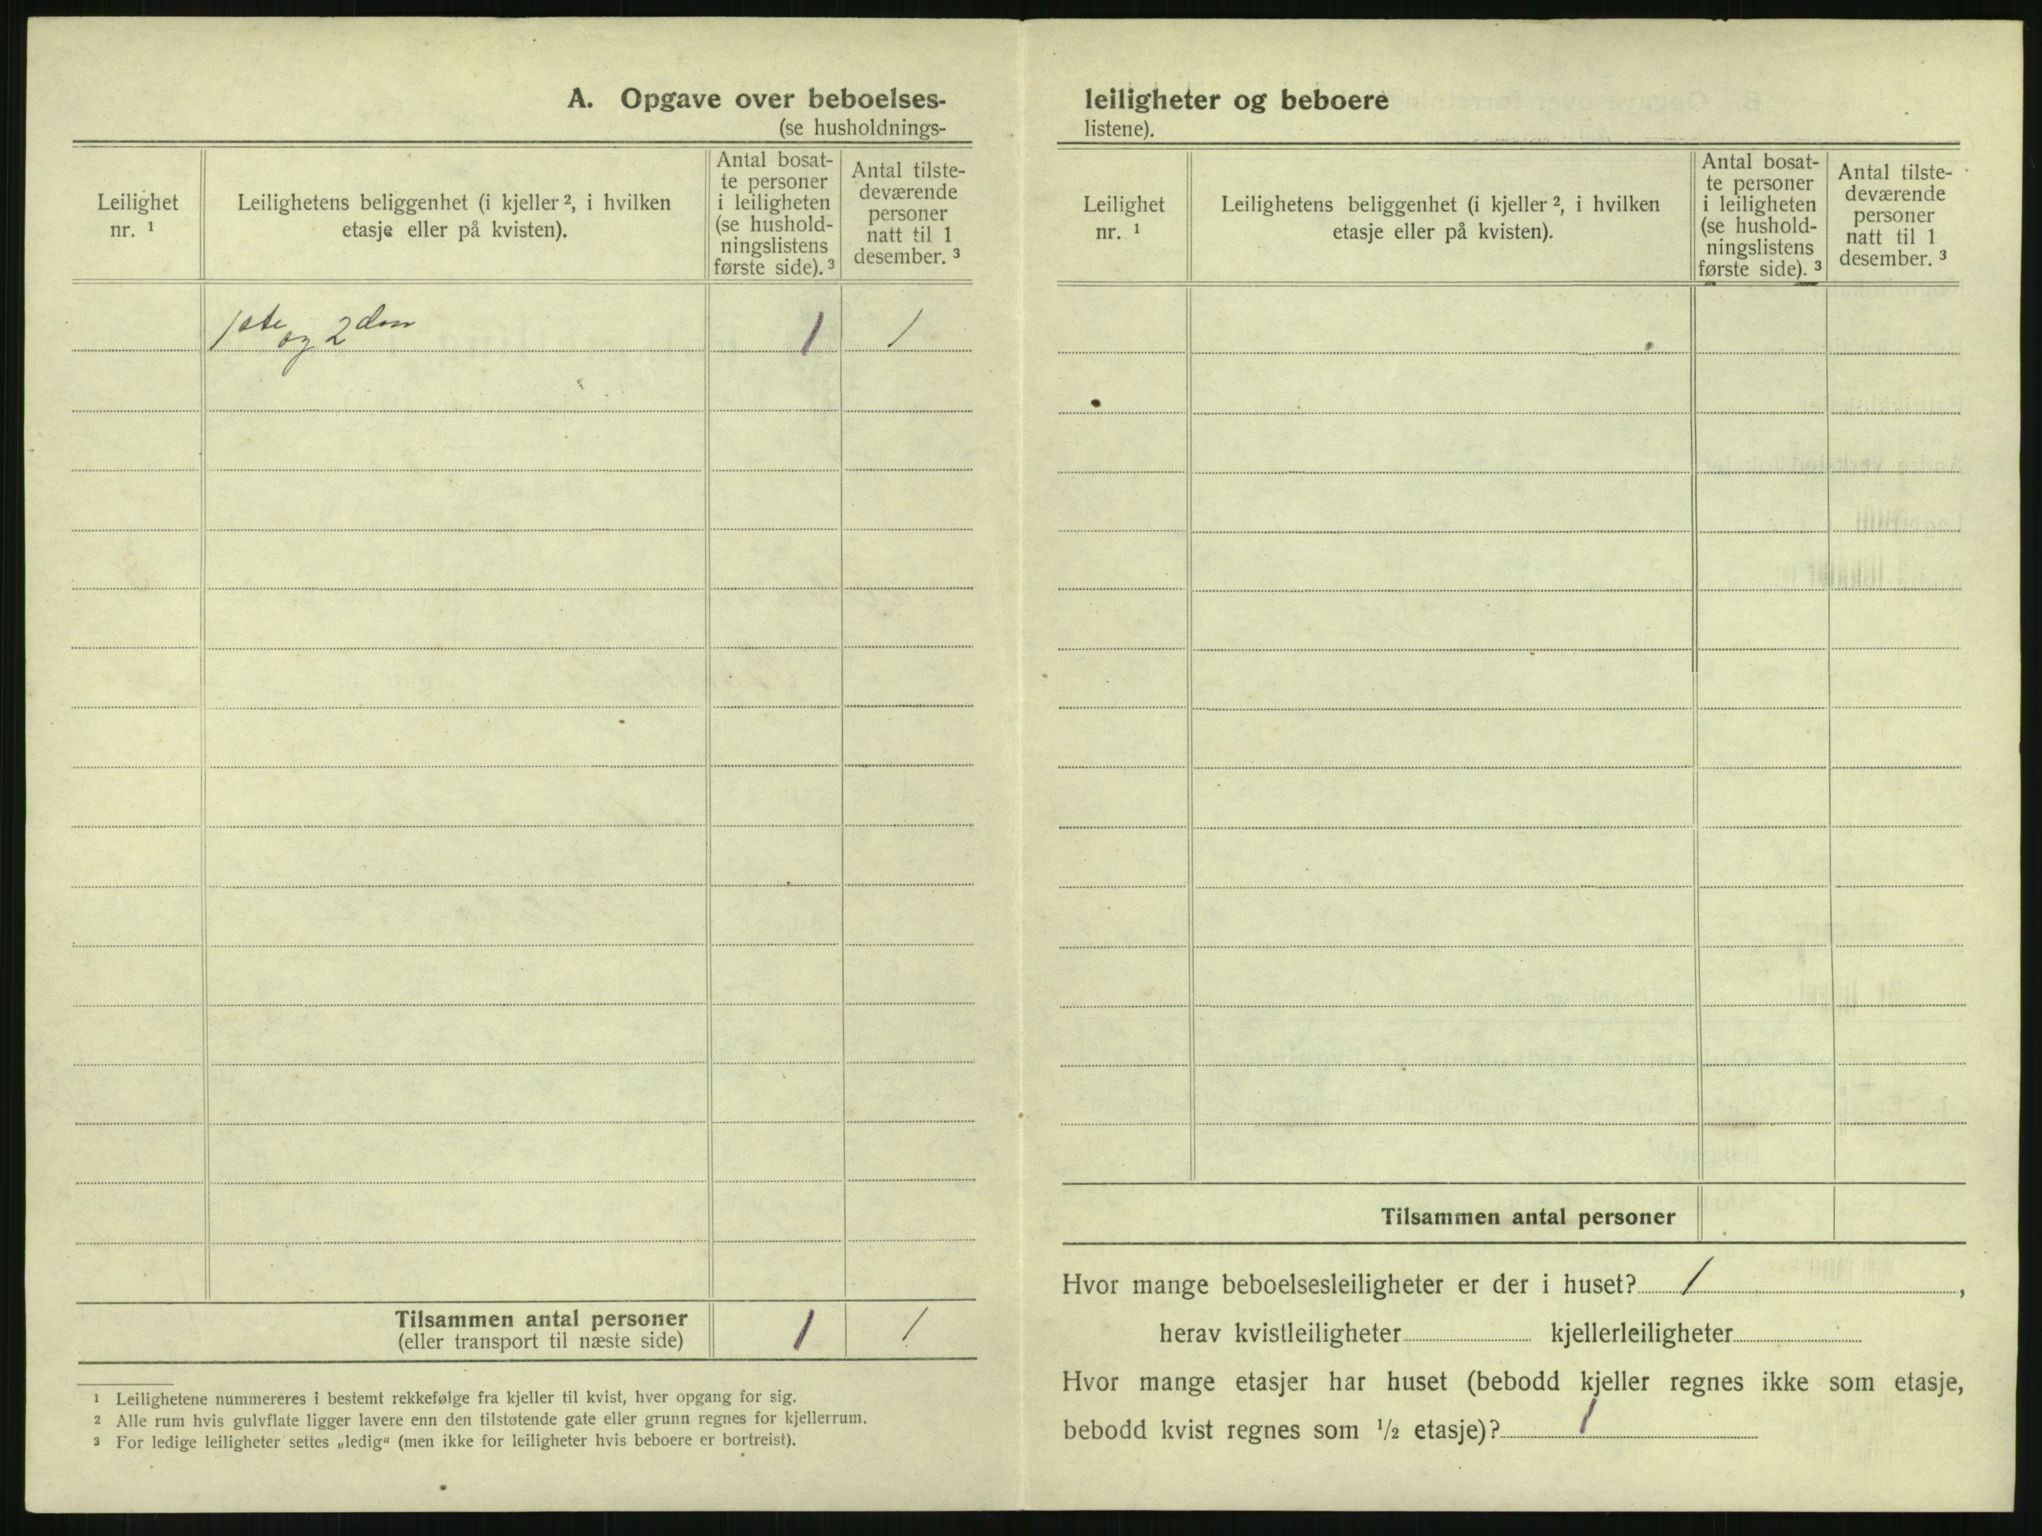 A. Opgave over beboelses-
(se husholdnings-
Leilighet
nr. ¹
Leilighetens beliggenhet (i kjeller ², i hvilken
etasje eller på kvisten).
Antal bosat-
te personer
i leiligheten
(se hushold-
ningslistens
første side). ³
Antal tilste-
deværende
personer
natt til 1
desember. ³
1ste og 2den 1 1
Tilsammen antal personer 1 1
(eller transport til næste side)
¹ Leilighetene nummereres i bestemt rekkefølge fra kjeller til kvist, hver opgang for sig.
² Alle rum hvis gulvflate ligger lavere enn den tilstøtende gate eller grunn regnes for kjellerrum.
³ For ledige leiligheter settes „ledig“ (men ikke for leiligheter hvis beboere er bortreist).
leiligheter og beboere
listene).
Leilighet
nr. ¹
Leilighetens beliggenhet (i kjeller ², i hvilken
etasje eller på kvisten).
Antal bosat-
te personer
i leiligheten
(se hushold-
ningslistens
første side). ³
Antal tilste-
deværende
personer
natt til 1
desember. ³
Tilsammen antal personer
Hvor mange beboelsesleiligheter er der i huset? 1 ,
herav kvistleiligheter kjellerleiligheter
Hvor mange etasjer har huset (bebodd kjeller regnes ikke som etasje,
bebodd kvist regnes som ½ etasje)? 1